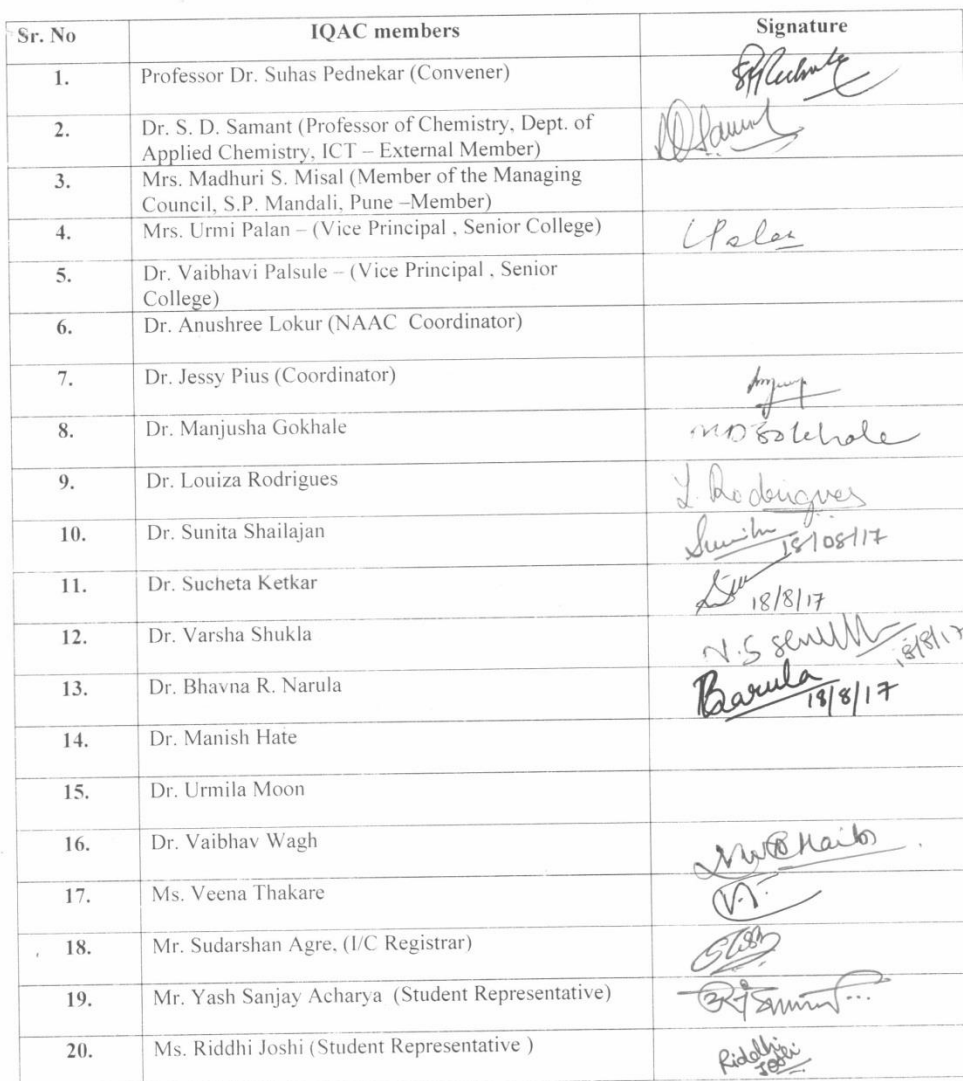 Sr. No IQAC members Signature
1. Professor Dr. Suhas Pednekar (Convener)
2. Dr. S. D. Samant (Professor of Chemistry, Dept. of
Applied Chemistry, ICT – External Member)
3. Mrs. Madhuri S. Misal (Member of the Managing
Council, S.P. Mandali, Pune –Member)
4. Mrs. Urmi Palan – (Vice Principal , Senior College)
5. Dr. Vaibhavi Palsule – (Vice Principal , Senior
College)
6. Dr. Anushree Lokur (NAAC Coordinator)
7. Dr. Jessy Pius (Coordinator)
8. Dr. Manjusha Gokhale
9. Dr. Louiza Rodrigues L. Rodrigues
10. Dr. Sunita Shailajan
18/08/17
11. Dr. Sucheta Ketkar
18/8/17
12. Dr. Varsha Shukla
18/8/17
13. Dr. Bhavna R. Narula
18/8/17
14. Dr. Manish Hate
15. Dr. Urmila Moon
16. Dr. Vaibhav Wagh
17. Ms. Veena Thakare
18. Mr. Sudarshan Agre, (I/C Registrar)
19. Mr. Yash Sanjay Acharya (Student Representative)
20. Ms. Riddhi Joshi (Student Representative ) Riddhi
Joshi